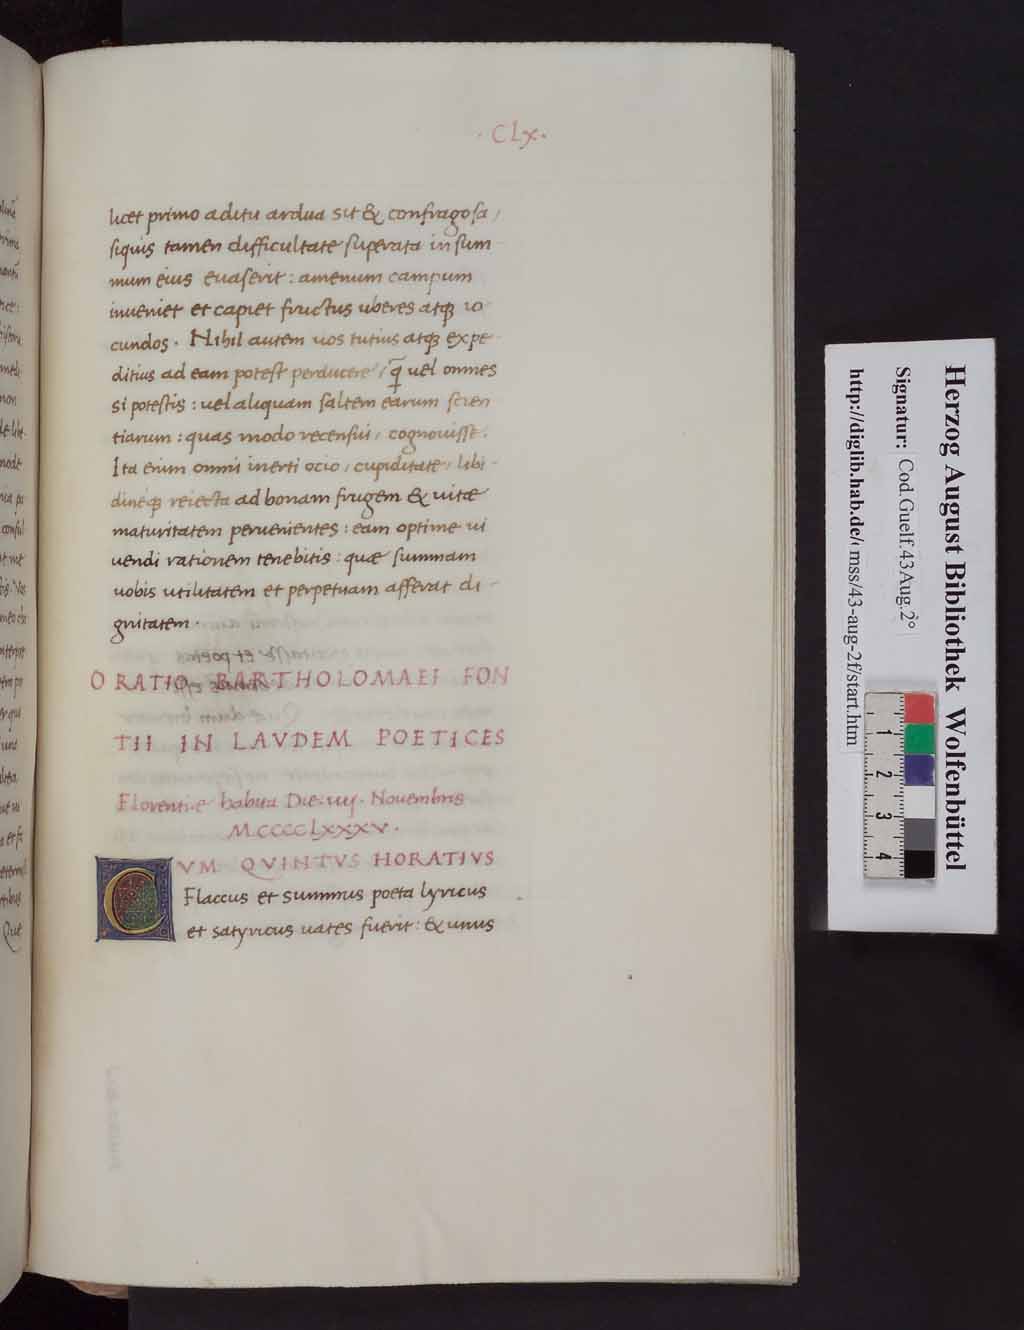 · CLX ·
licet primo aditu ardua sit & confragosa /
siquis tamen difficultate superata in sum-
mum eius euaserit : amenum campum
inueniet et capiet fructus uberes atqꝫ io-
cundos · Nihil autem uos tutius atqꝫ expe-
ditius ad eam potest perducere / q̄ uel omnes
si potestis : uel aliquam saltem earum scien
tiarum : quas modo recensui / cognouisse ·
Ita enim omni inerti ocio / cupiditate / libi-
dineqꝫ reiecta ad bonam frugem & uitæ
maturitatem peruenientes : eam optime ui
uendi rationem tenebitis : quæ summam
uobis utilitatem et perpetuam afferat di-
gnitatem ·
ORATIO BARTHOLOMAEI FON
TII IN LAVDEM POETICES
Florentiæ habita Die · Nouembris
MCCCCLXXXV ·
CVM QVINTVS HORATIVS
Flaccus et summus poeta lyricus
et satyricus uates fuerit : & unus
Herzog August Bibliothek Wolfenbüttel
Signatur: Cod.Guelf.43Aug.2°
http://diglib.hab.de/ mss/43-aug-2f/start.htm
1 2 3 4